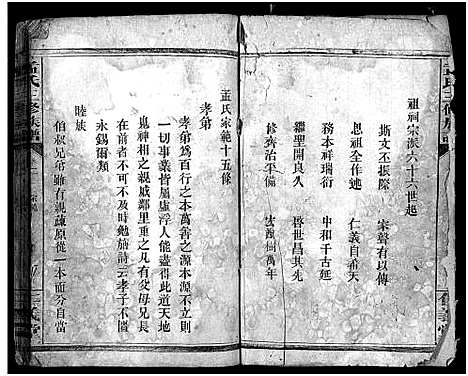 祖祠宗派六十六世起
斯文丕振際　家聲有以傳
恩祖全作述　仁義自希天
務本祥瑞衍　中和千古延
繼聖開良久　啓世昌其先
修齊治平備　樹萬年
孟氏家範十五條
孝弟
孝弟為百行之本萬善之源本源不立則
一切事業皆屬虛浮人能盡得此道天地
鬼神相之親戚鄰里重之所以有父母兄長
在前者不可不及時勉旃詩云孝子不匱
永錫爾類
睦族
伯叔兄弟雖有遠疎原從一本而分自當
孟氏三修族譜